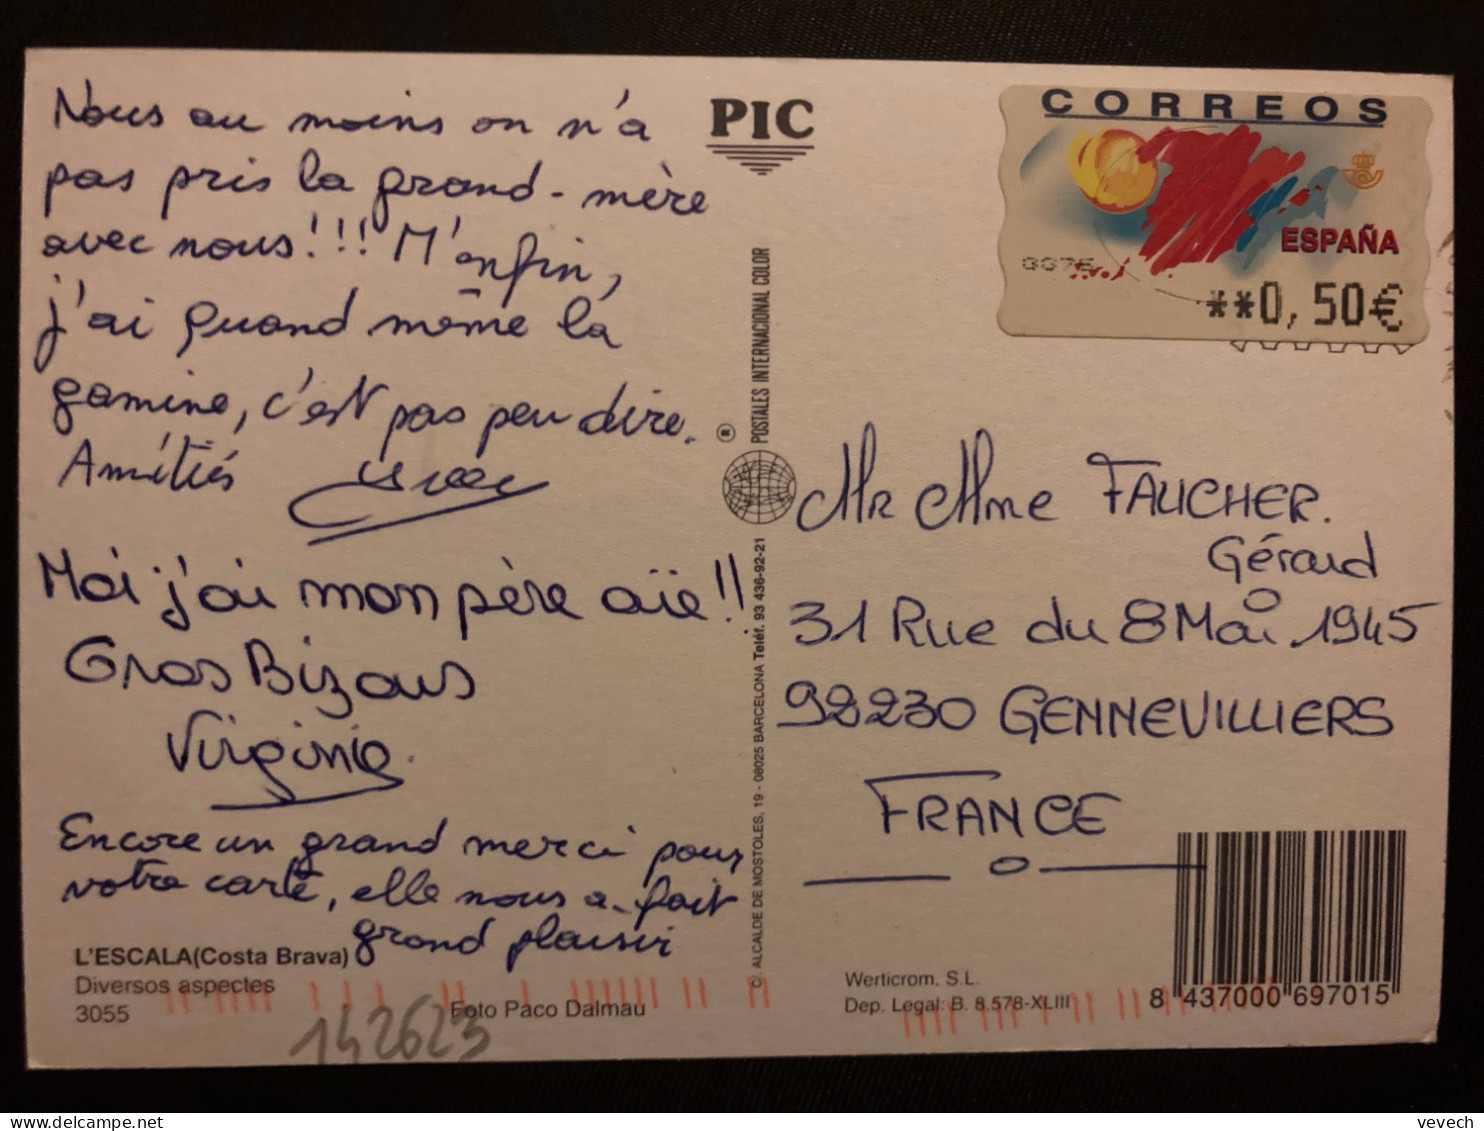 Nous au moins on n'a
pas pris la grand-mère
avec nous!!! M'enfin,
j'ai quand même la
gamine, c'est pas peu dire.
Amitiés
Moi j'ai mon père aïe!!
Gros Bizous
Virginie.
Encore un grand merci pour
votre carte, elle nous a fait
grand plaisir
L'ESCALA(Costa Brava)
Diversos aspectes
3055
Foto Paco Dalmau
142623
PIC
C. ALCALDE DE MOSTOLES, 19 - 08025 BARCELONA Teléf. 93 436-92-21
® POSTALES INTERNACIONAL COLOR
CORREOS
ESPAÑA
**0,50€
Mr Mme FAUCHER.
Gérard
31 Rue du 8 Mai 1945
92230 GENNEVILLIERS
FRANCE
Werticrom, S.L.
Dep. Legal: B. 8.578-XLIII
8 437000 697015
vevech